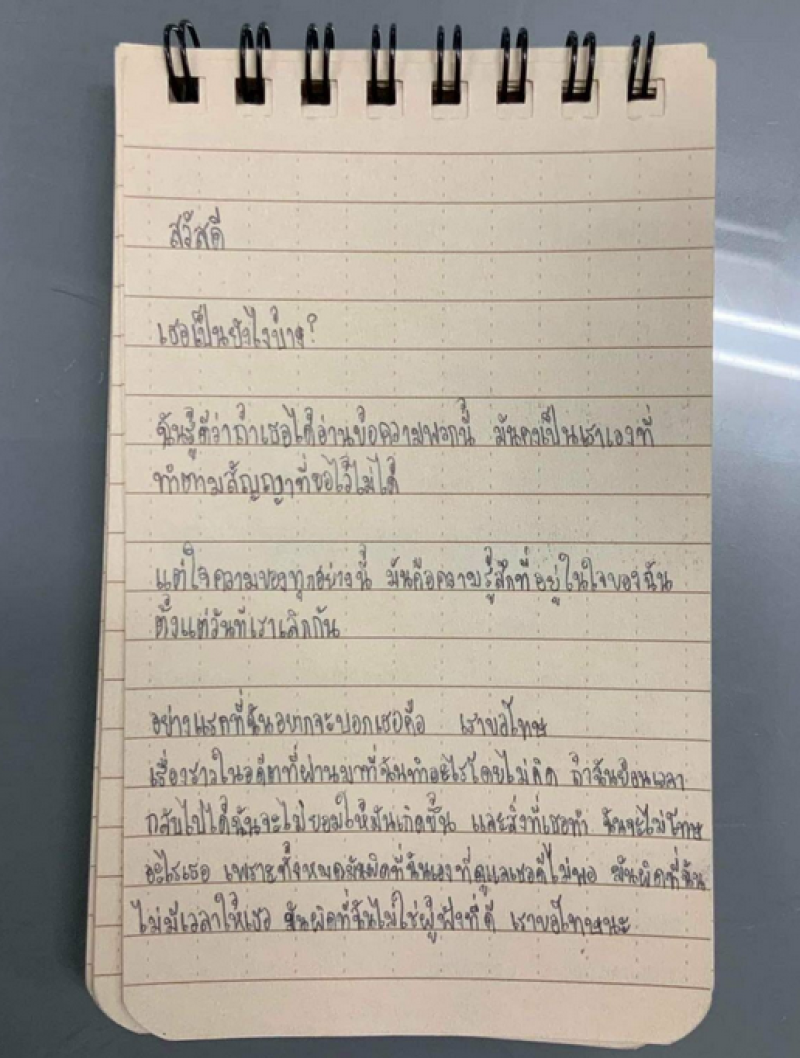 สวัสดี
เธอเป็นยังไงบ้าง?
ฉันรู้ดีว่าถ้าเธอได้อ่านข้อความพวกนี้ มันคงเป็นเราเองที่
ทำตามสัญญาที่ขอไว้ไม่ได้
แต่ใจความของทุกอย่างนี้ มันคือความรู้สึกที่อยู่ในใจของฉัน
ตั้งแต่วันที่เราเลิกกัน
อย่างแรกที่ฉันอยากจะบอกเธอคือ เราขอโทษ
เรื่องราวในอดีตที่ผ่านมาที่ฉันทำอะไรโดยไม่คิด ถ้าฉันย้อนเวลา
กลับไปได้ฉันจะไม่ยอมให้มันเกิดขึ้น และสิ่งที่เธอทำ ฉันจะไม่โทษ
อะไรเธอ เพราะทั้งหมดมันผิดที่ฉันเองที่ดูแลเธอดีไม่พอ มันผิดที่ฉัน
ไม่มีเวลาให้เธอ มันผิดที่ฉันไม่ใช่ผู้ฟังที่ดี เราขอโทษนะ